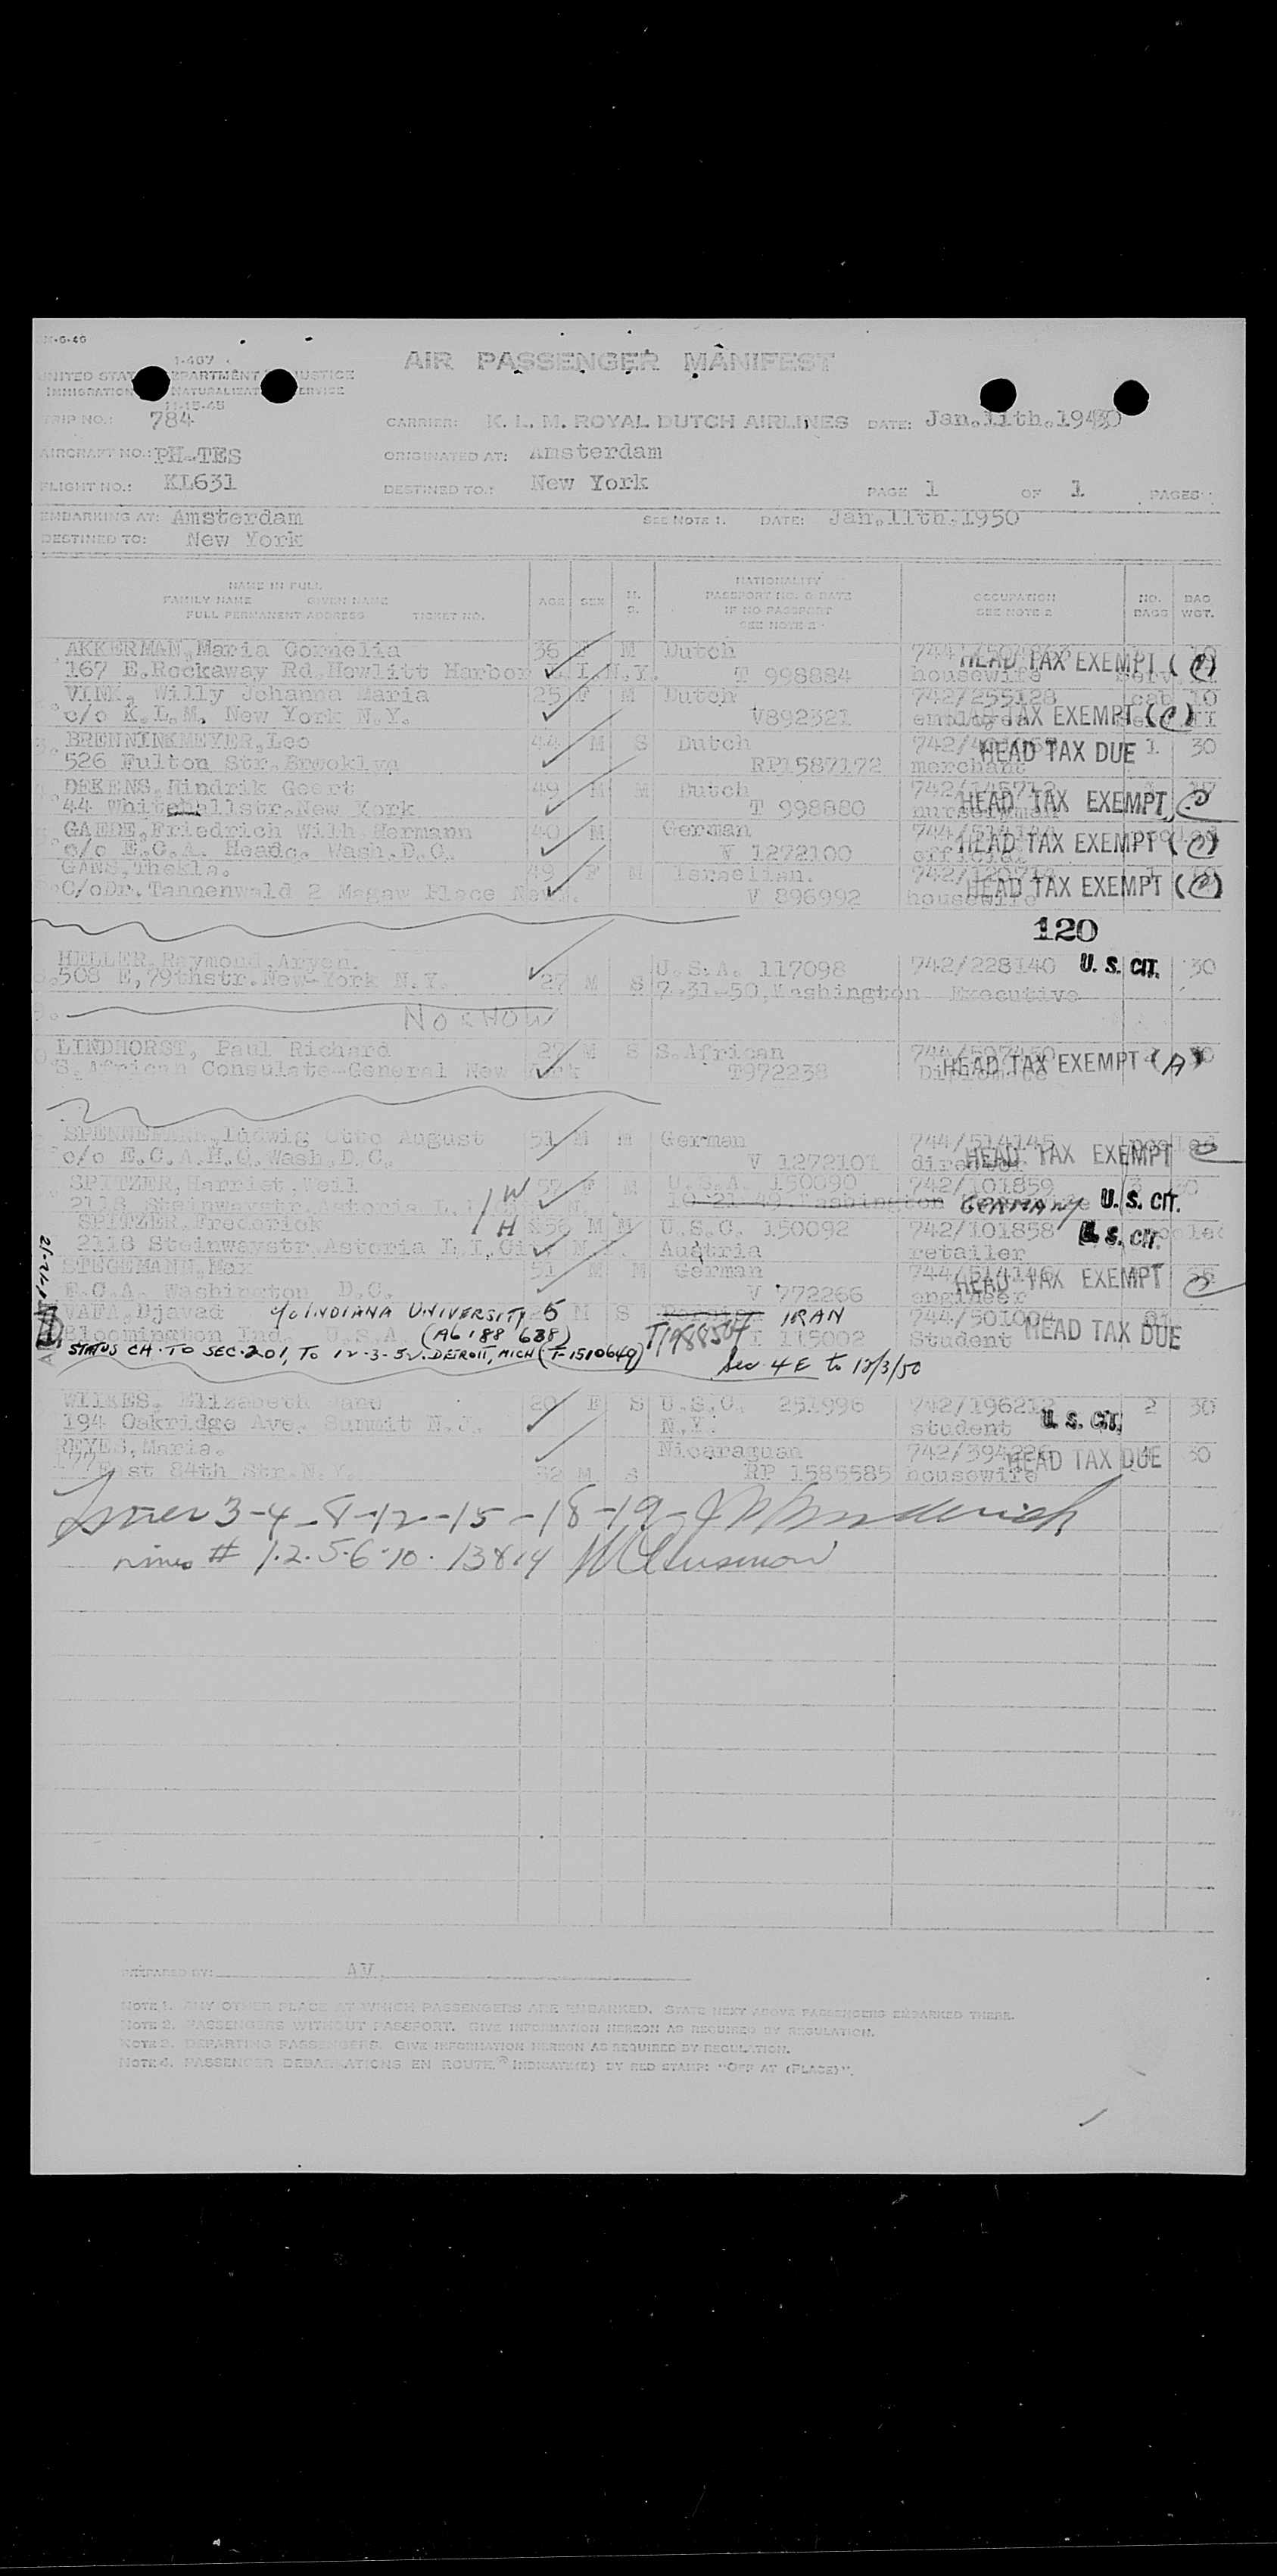 I-467
AIR PASSENGER MANIFEST
UNITED STATES DEPARTMENT OF JUSTICE
IMMIGRATION NATURALIZATION SERVICE
11-15-45
TRIP NO.: 784 CARRIER: K. L. M. ROYAL DUTCH AIRLINES DATE: Jan.11th.1950
AIRCRAFT NO.: PH-TES ORIGINATED AT: Amsterdam
FLIGHT NO.: KL631 DESTINED TO: New York PAGE 1 OF 1 PAGES
EMBARKING AT: Amsterdam SEE NOTE 1. DATE: Jan.11th.1950
DESTINED TO: New York
NAME IN FULL
FAMILY NAME GIVEN NAME
FULL PERMANENT ADDRESS TICKET NO.
AGE SEX M. S.
NATIONALITY
PASSPORT NO. & DATE
IF NO PASSPORT
SEE NOTE 2
OCCUPATION
SEE NOTE 2
NO. BAGS
BAG WGT.
AKKERMAN, Maria Cornelia 36 F M Dutch
167 E.Rockaway Rd.Hewlitt Harbor L.I.N.Y. T 998884 housewife HEAD TAX EXEMPT (C)
VINK, Willy Johanna Maria 25 F M Dutch 742/255128 10
c/o K.L.M. New York N.Y. V892321 HEAD TAX EXEMPT (C)
BRENNINKMEYER, Leo 44 M S Dutch HEAD TAX DUE 1 30
526 Fulton Str. Brooklyn RP1587172 merchant
DEKENS, Hindrik Geert 49 M M Dutch
44 Whitehallstr. New York T 998880 nurseryman HEAD TAX EXEMPT C
GAEDE, Friedrich Wilh. Hermann 40 M German
c/o E.C.A. Headq. Wash.D.C. V 1272100 official HEAD TAX EXEMPT (C)
GANS, Thekla. 49 F M Israelian.
C/oDr. Tannenwald 2 Magaw Place V 896992 housewife HEAD TAX EXEMPT (C)
120
HELLER, Raymond, Aryen. U.S.A. 117098 742/228140 U. S. CIT. 30
508 E,79thstr. New-York N.Y. 27 M S 7-31-50, Washington Executive
No SHOW
LINDHORST, Paul Richard 27 M S S.African
S.African Consulate-General New York T972238 HEAD TAX EXEMPT (A)
SPENNEMANN, Ludwig Otto August 51 M M German 744/514145
c/o E.C.A.H.Q. Wash.D.C. V 1272101 director HEAD TAX EXEMPT C
SPITZER, Harriet Weil W M U.S.A. 150090 742/101859
2118 Steinwaystr Astoria 10-21-49. Washington GERMANY U. S. CIT.
SPITZER, Frederick H 56 M M U.S.C. 150092 742/101858 U. S. CIT.
2118 Steinwaystr. Astoria L.I. Austria retailer
STEGEMANN, Max 51 M M German 744/514146
E.C.A. Washington D.C. V 772266 engineer HEAD TAX EXEMPT C
WAFA, Djavad c/o INDIANA UNIVERSITY M S IRAN 744/501004
Bloomington Ind. U.S.A. (A6 188 688) T1988504 I 115002 Student HEAD TAX DUE
STATUS CH. TO SEC. 201, TO 12-3-52. DETROIT, MICH (T-1510649) Sec 4E to 12/3/50
WILKES, Elizabeth 20 F S U.S.C. 251996 2 30
194 Oakridge Ave. Summit N.J. N.Y. student U. S. CIT.
REYES, Maria. Nicaraguan HEAD TAX DUE 30
st 84th Str. N.Y. 32 M S RP 1585585 housewife
3-4-8-12-15-18-19-
# 1.2.5.6.10. 13&14
PREPARED BY: AV.
NOTE 1. ANY OTHER PLACE AT WHICH PASSENGERS ARE EMBARKED. STATE NEXT ABOVE PASSENGERS EMBARKED THERE.
NOTE 2. PASSENGERS WITHOUT PASSPORT. GIVE INFORMATION HEREON AS REQUIRED BY REGULATION.
NOTE 3. DEPARTING PASSENGERS. GIVE INFORMATION HEREON AS REQUIRED BY REGULATION.
NOTE 4. PASSENGER DEBARKATIONS EN ROUTE INDICATE(D) BY RED STAMP: "OFF AT (PLACE)".